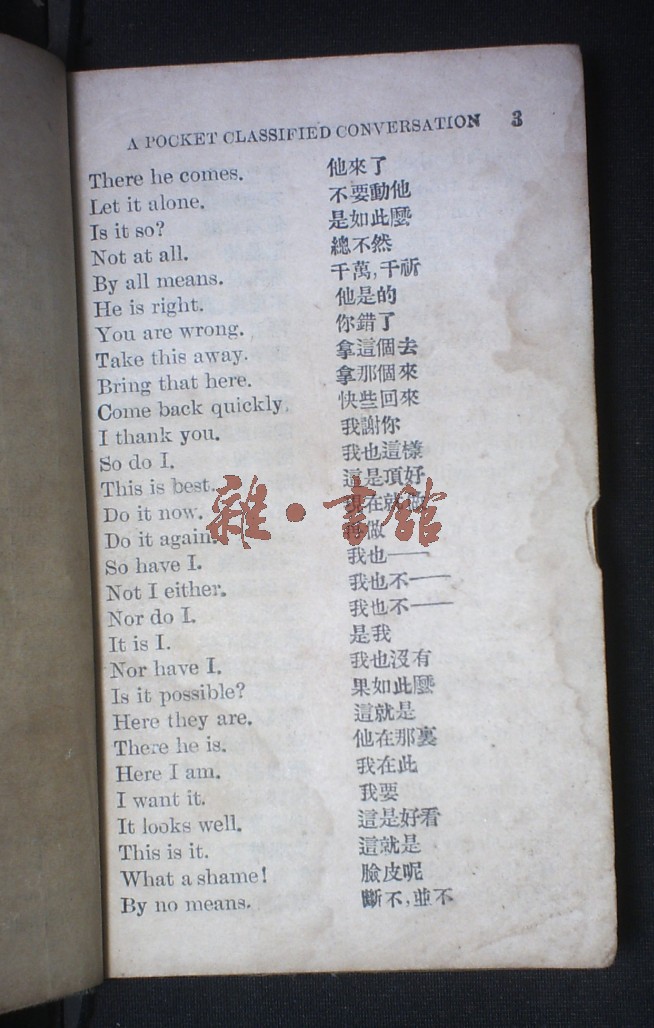 A POCKET CLASSIFIED CONVERSATION 3
There he comes. 他來了
Let it alone. 不要動他
Is it so? 是如此麼
Not at all. 總不然
By all means. 千萬,千祈
He is right. 他是的
You are wrong. 你錯了
Take this away. 拿這個去
Bring that here. 拿那個來
Come back quickly. 快些回來
I thank you. 我謝你
So do I. 我也這樣
This is best. 這是頂好
Do it now. 現在就做
Do it again. 再做
So have I. 我也——
Not I either. 我也不——
Nor do I. 我也不——
It is I. 是我
Nor have I. 我也沒有
Is it possible? 果如此麼
Here they are. 這就是
There he is. 他在那裏
Here I am. 我在此
I want it. 我要
It looks well. 這是好看
This is it. 這就是
What a shame! 臉皮呢
By no means. 斷不,並不
雜·書館